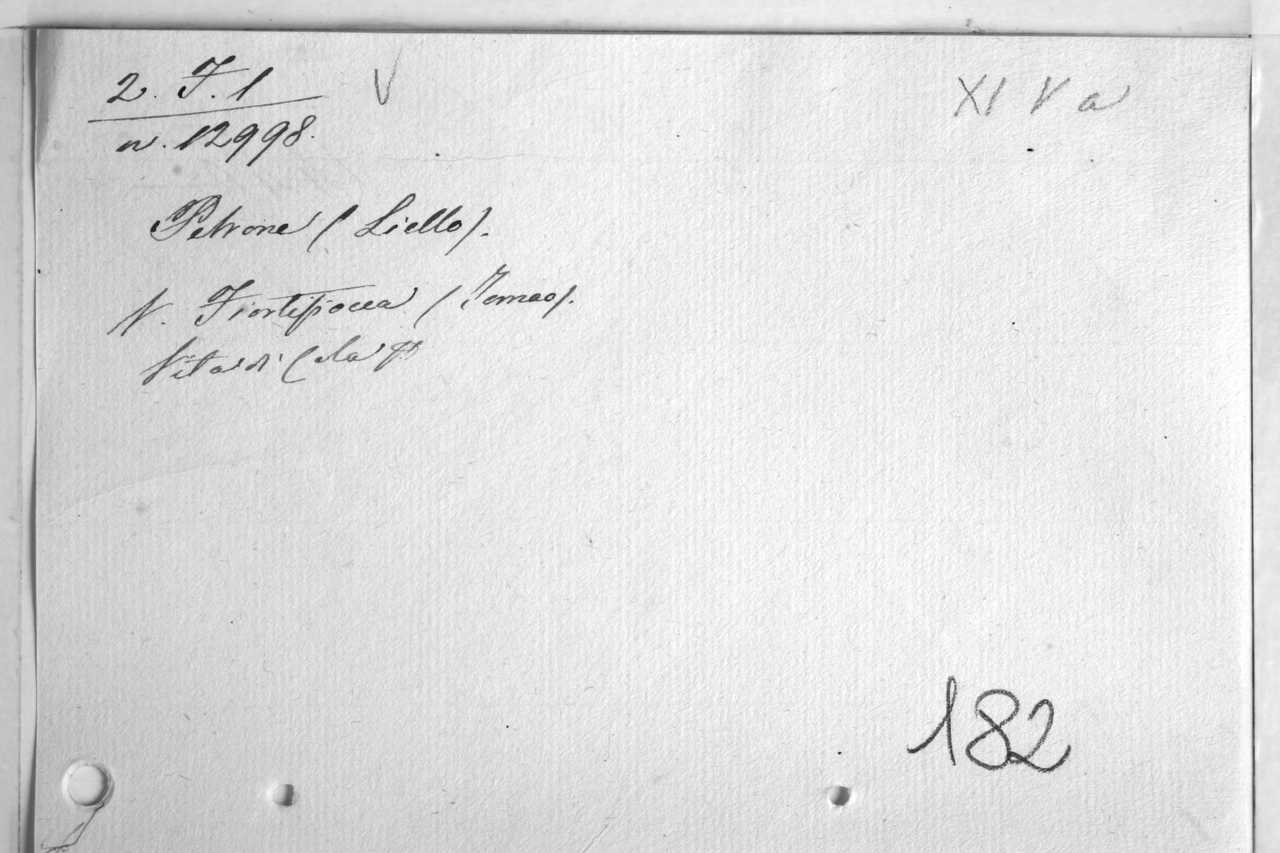 2. F. 1 V XI V a
n. 12998.
Petrone (Liello).
V. Fiortifiocca (Tomao).
Vita di Cola
182